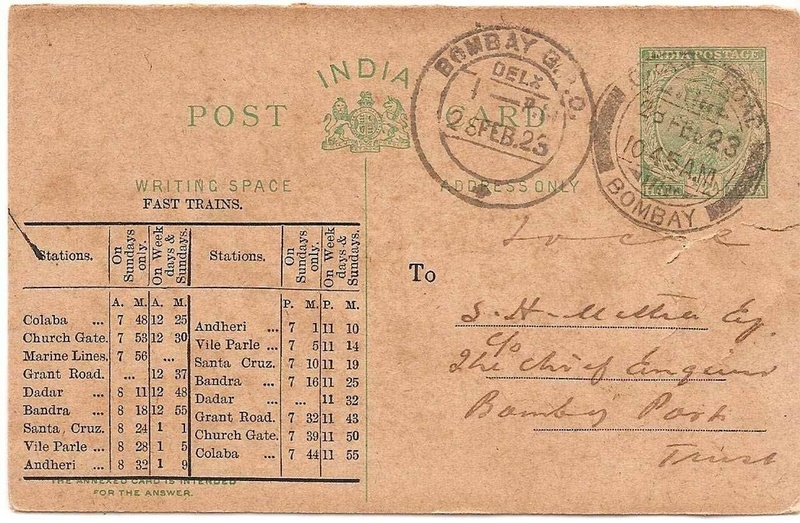 INDIA
POST CARD
WRITING SPACE
ADDRESS ONLY
INDIA POSTAGE
BOMBAY G.P.O.
DELY
28 FEB. 23
28 FEB 23
10.45 A.M.
BOMBAY
FAST TRAINS.
Stations. On Sundays only. On Week days & Sundays. Stations. On Sundays only. On Week days & Sundays.
A. M. A. M. P. M. P. M.
Colaba ... 7 48 12 25
Church Gate. 7 53 12 30
Marine Lines. 7 56 ...
Grant Road. ... 12 37
Dadar ... 8 11 12 48
Bandra ... 8 18 12 55
Santa Cruz. 8 24 1 1
Vile Parle ... 8 28 1 5
Andheri ... 8 32 1 9
Andheri ... 7 1 11 10
Vile Parle ... 7 5 11 14
Santa Cruz. 7 10 11 19
Bandra ... 7 16 11 25
Dadar ... 11 32
Grant Road. 7 32 11 43
Church Gate. 7 39 11 50
Colaba ... 7 44 11 55
THE ANNEXED CARD IS INTENDED
FOR THE ANSWER.
To
S. H. Mehta Esq.
c/o
The Chief Engineer
Bombay Port
Trust